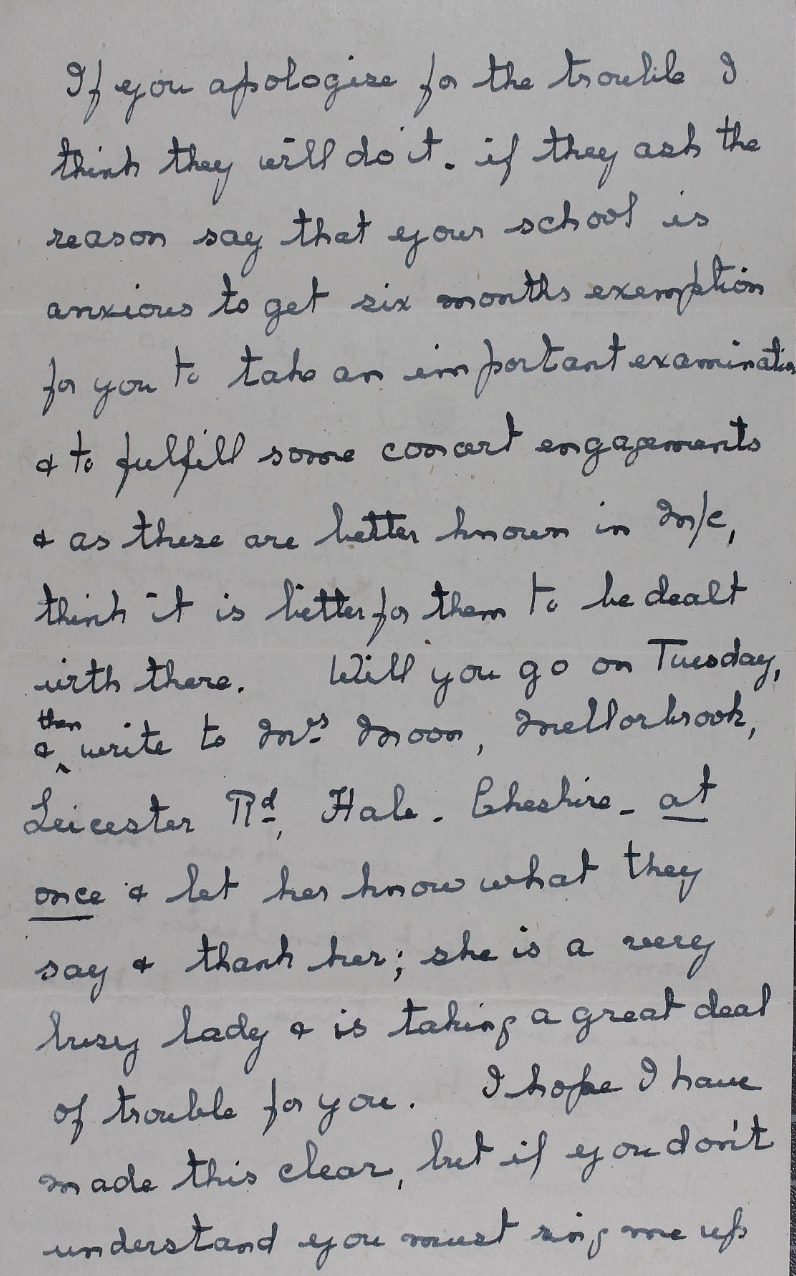 If you apologize for the trouble I
think they will do it. if they ask the
reason say that your school is
anxious to get six months exemption
for you to take an important examination
& to fulfill some concert engagements
& as these are better known in M/c,
think it is better for them to be dealt
with there. Will you go on Tuesday,
& then write to Mrs Moon, Mellorbrook,
Leicester Rd, Hale. Cheshire - at
once & let her know what they
say & thank her; she is a very
busy lady & is taking a great deal
of trouble for you. I hope I have
made this clear, but if you don't
understand you must ring me up